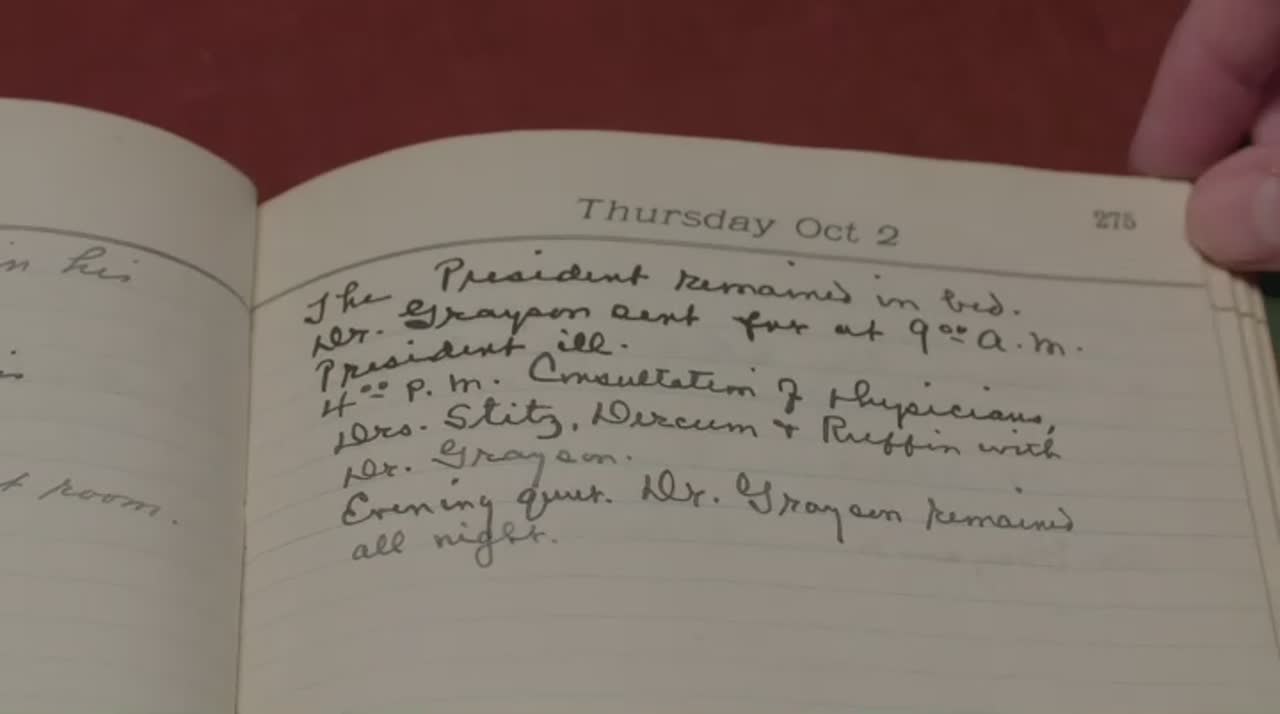 Thursday Oct 2
275
The President remained in bed.
Dr. Grayson sent for at 9⁰⁰ a.m.
President ill.
4⁰⁰ p.m. Consultation of physicians,
Drs. Stitz, Dercum + Ruffin with
Dr. Grayson.
Evening quiet. Dr. Grayson remained
all night.
in his
room.